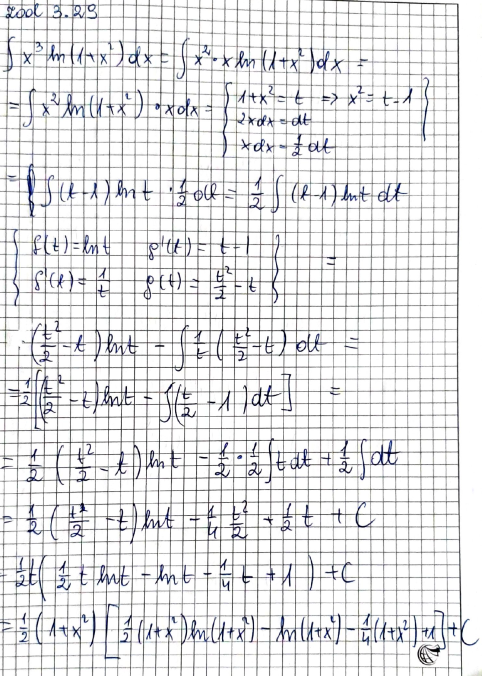 zad 3.29
∫ x³ ln(1+x²) dx = ∫ x² · x ln(1+x²) dx =
= ∫ x² ln(1+x²) · x dx = { 1+x² = t ⇒ x² = t-1
2x dx = dt
x dx = 1/2 dt }
= ∫ (t-1) ln t · 1/2 dt = 1/2 ∫ (t-1) ln t dt
{ f(t) = ln t g'(t) = t-1
f'(t) = 1/t g(t) = t²/2 - t } =
(t²/2 - t) ln t - ∫ 1/t (t²/2 - t) dt =
= 1/2 [(t²/2 - t) ln t - ∫ (t/2 - 1) dt] =
= 1/2 (t²/2 - t) ln t - 1/2 · 1/2 ∫ t dt + 1/2 ∫ dt
= 1/2 (t²/2 - t) ln t - 1/4 t²/2 + 1/2 t + C
= 1/2 t (1/2 t ln t - ln t - 1/4 t + 1) + C
= 1/2 (1+x²) [1/2 (1+x²) ln(1+x²) - ln(1+x²) - 1/4 (1+x²) + 1] + C